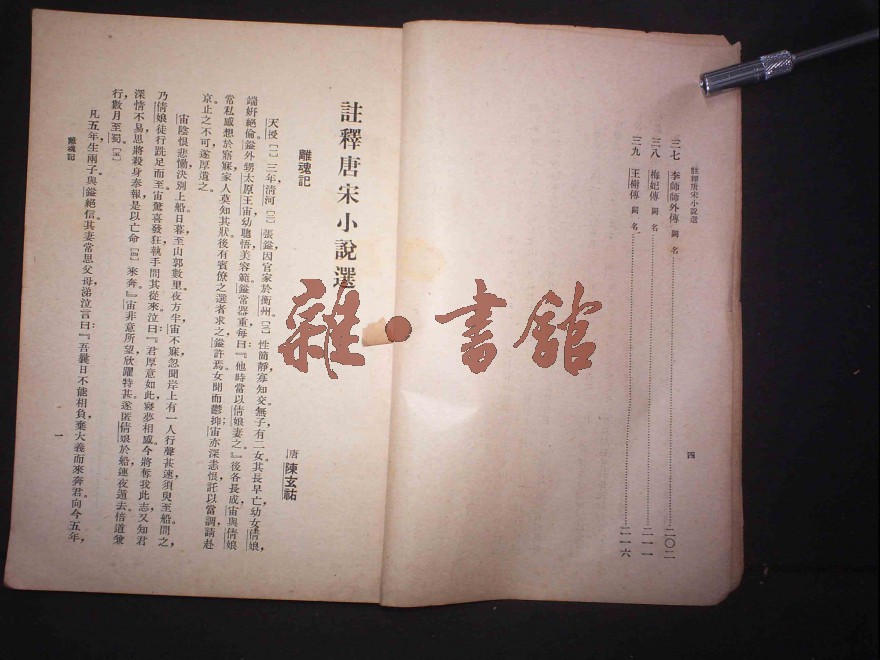 註釋唐宋小說選
三七 李師師外傳 闕名……二〇二
三八 梅妃傳 闕名……二一一
三九 王榭傳 闕名……二一六
四
註釋唐宋小說選
離魂記
唐 陳玄祐
天授〔一〕三年，清河〔二〕張鎰，因官家於衡州。〔三〕性簡靜，寡知交。無子，有二女。其長早亡，幼女倩娘，
端妍絕倫。鎰外甥太原王宙，幼聰悟，美容範。鎰常器重，每曰：『他時當以倩娘妻之。』後各長成，宙與倩娘
常私感想於寤寐，家人莫知其狀。後有賓僚之選者求之，鎰許焉。女聞而鬱抑，宙亦深恚恨，託以當調，請赴
京，止之不可，遂厚遣之。
宙陰恨悲慟，決別上船。日暮，至山郭數里。夜方半，宙不寐，忽聞岸上有一人行聲甚速，須臾至船。問之，
乃倩娘徒行跣足而至。宙驚喜發狂，執手問其從來。泣曰：『君厚意如此，寢夢相感。今將奪我此志，又知君
深情不易，思將殺身奉報，是以亡命〔四〕來奔。』宙非意所望，欣躍特甚。遂匿倩娘於船，連夜遁去。倍道兼
行，數月至蜀。〔五〕
凡五年，生兩子，與鎰絕信。其妻常思父母，涕泣言曰：『吾曩日不能相負，棄大義而來奔君。向今五年，
離魂記
一
雜·書館